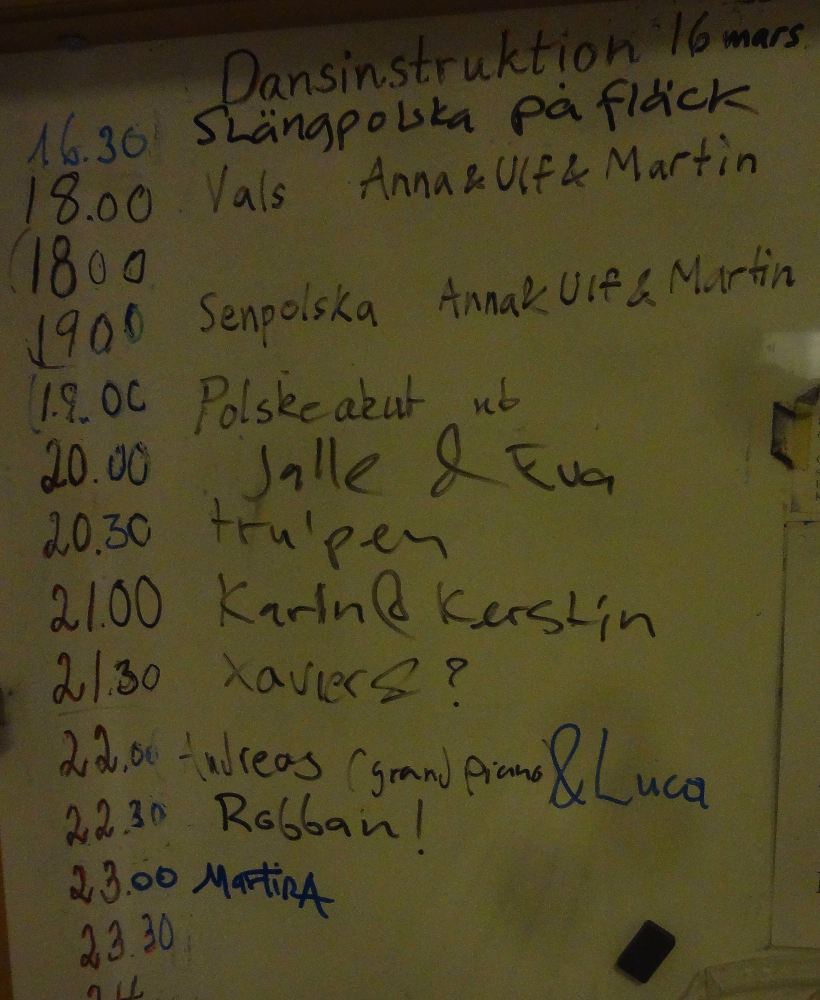 Dansinstruktion 16 mars
16.30 Slängpolska på fläck
18.00 Vals Anna & Ulf & Martin
(1800
1900 Senpolska Anna & Ulf & Martin
(19.00 Polskeakut
20.00 Jalle & Eva
20.30 tru'pen
21.00 Karin & Kerstin
21.30 Xaviers ?
22.00 Andreas (grand piano & Luca
22.30 Robban!
23.00 MartinA
23.30
24